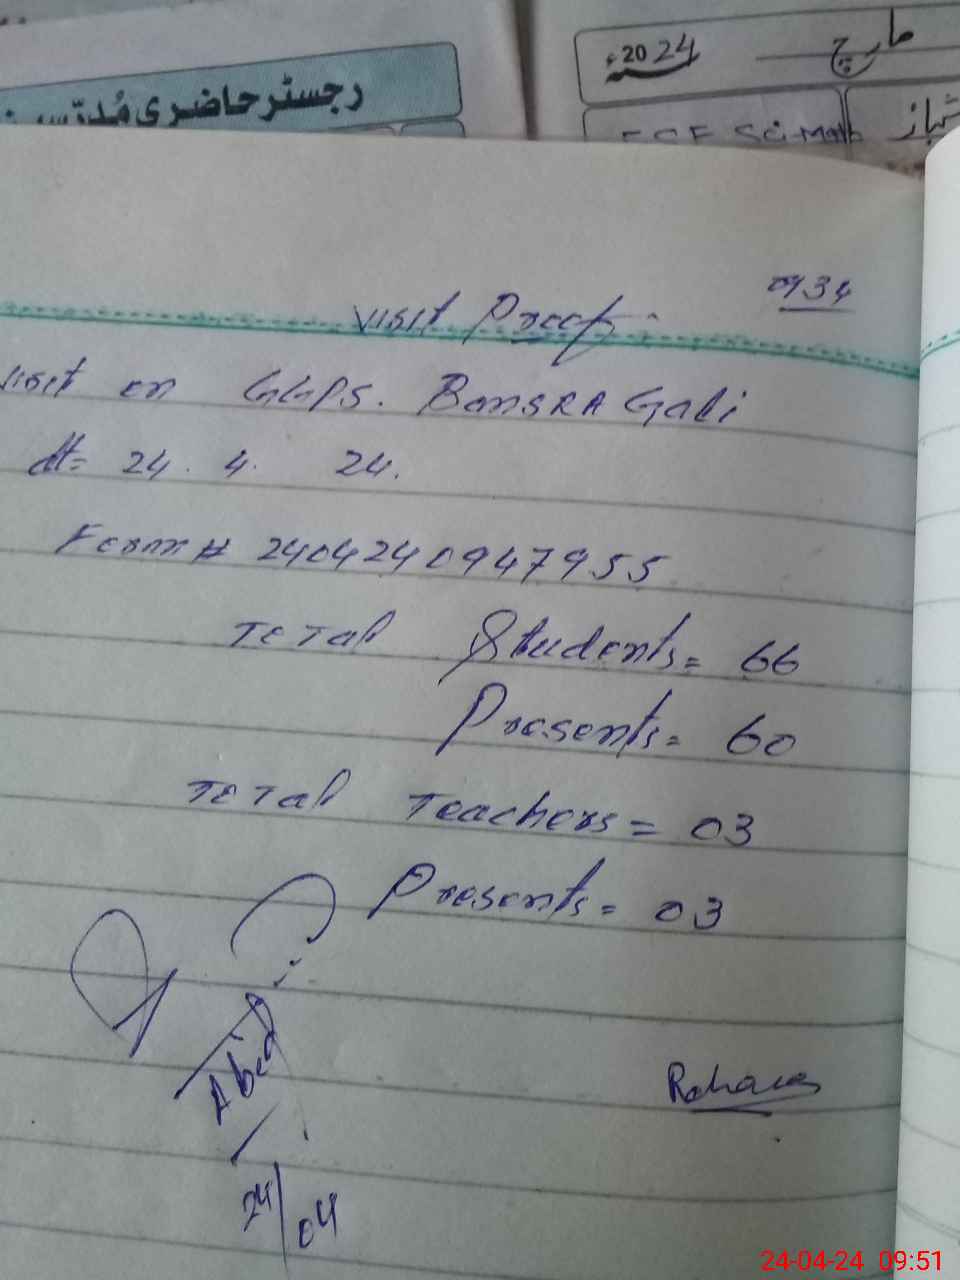 رجسٹر حاضری مُدرّسین
2024ء مارچ
Sci-Math شہباز
0934
Visit Proof
Visit on GGPS. BANSRA Gali
dt= 24. 4. 24.
Form # 2404240947955
Total Students = 66
Presents = 60
Total Teachers = 03
Presents = 03
Abid
24/04
24-04-24 09:51